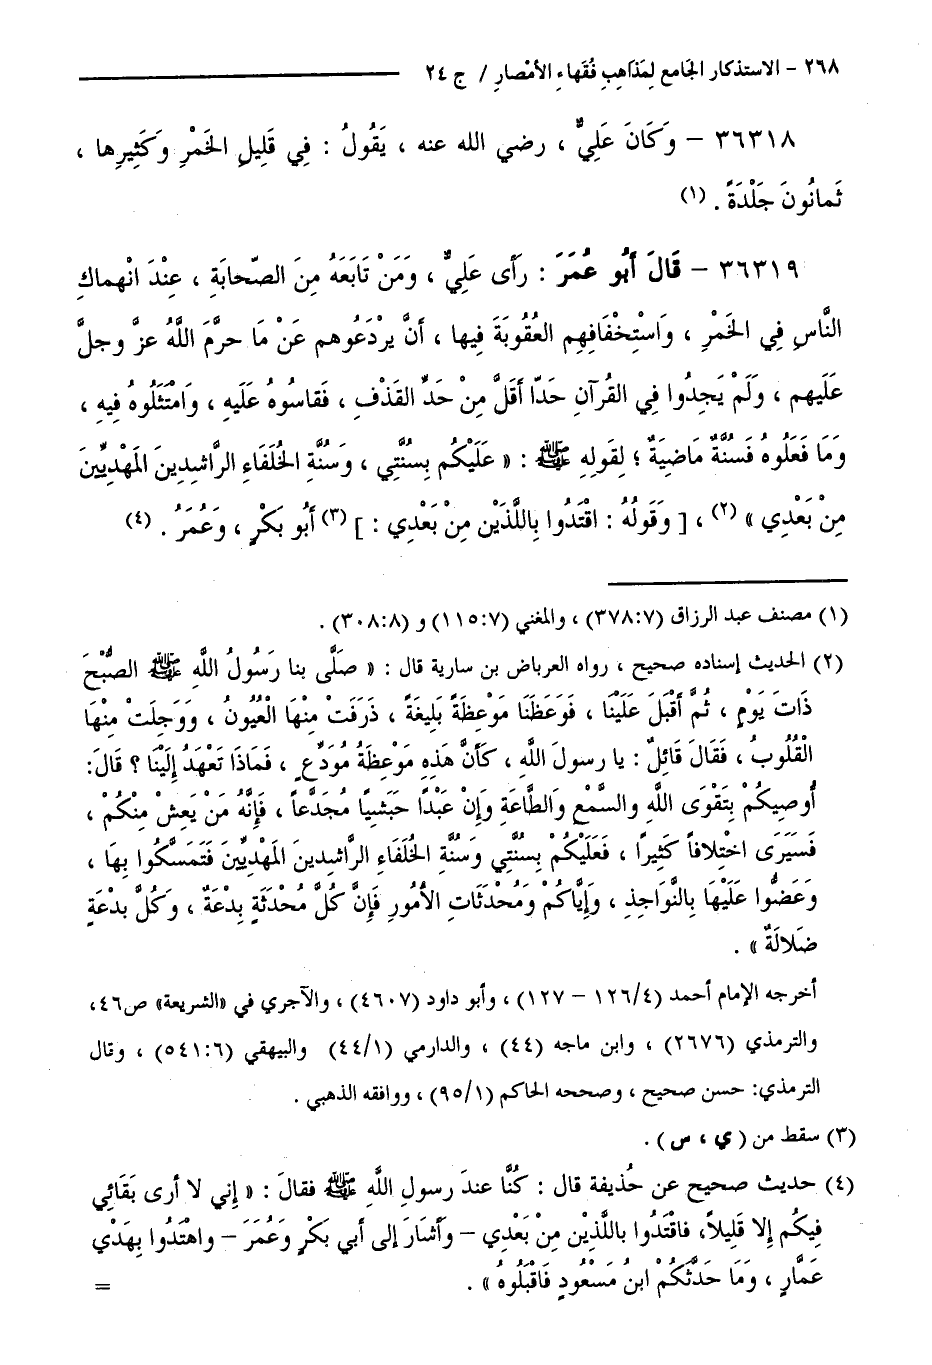 ٢٦٨ - الاستذكار الجَامع لِمَذاهِبِ فُقَهاءِ الأَمْصار / ج ٢٤
٣٦٣١٨ - وَكَانَ عَلِيٌّ ، رضي الله عنه ، يَقُولُ : فِي قَلِيلِ الخَمْرِ وَكَثِيرِها ،
ثَمانُونَ جَلْدَةً . (١)
٣٦٣١٩ - قَالَ أَبُو عُمَرَ : رَأى عَلِيٌّ ، وَمَنْ تَابَعَهُ مِنَ الصَّحابَةِ ، عِنْدَ انْهماكِ
النَّاسِ فِي الخَمْرِ ، وَاسْتِخْفَافِهِم العُقُوبَةَ فِيها ، أَنَّ يرْدَعُوهم عَنْ مَا حرَّمَ اللَّهُ عزَّ وجلَّ
عَلَيهِم ، وَلَمْ يَجِدُوا فِي القُرآنِ حَدّا أَقَلَّ مِنْ حَدِّ القَذْفِ ، فَقاسُوهُ عَلَيهِ ، وَامْتَثَلُوهُ فِيهِ ،
وَمَا فَعَلُوهُ فَسُنَّةٌ مَاضِيَةٌ ؛ لِقَولِهِ ﷺ : « عَلَيْكُم بِسُنَّتِي ، وَسُنَّةِ الخُلَفَاءِ الرَّاشِدِينَ المَهْدِيِّينَ
مِنْ بَعْدِي » (٢) ، [ وَقَولُهُ : اقْتَدُوا بِاللَّذَيْنِ مِنْ بَعْدِي : ] (٣) أَبُو بَكْرٍ ، وَعُمَرُ . (٤)
(١) مصنف عبد الرزاق (٣٧٨:٧) ، والمغني (١١٥:٧) و (٣٠٨:٨) .
(٢) الحديث إسناده صحيح ، رواه العرباض بن سارية قال : « صَلَّى بنا رَسُولُ اللَّهِ ﷺ الصُّبْحَ
ذَاتَ يَوْمٍ ، ثُمَّ أَقْبَلَ عَلَيْنَا ، فَوَعَظَنَا مَوْعِظَةً بَلِيغَةً ، ذَرَفَتْ مِنْهَا الْعُيُونُ ، وَوَجِلَتْ مِنْهَا
الْقُلُوبُ ، فَقَالَ قَائِلٌ : يا رسولَ اللَّهِ ، كَأَنَّ هَذِهِ مَوْعِظَةُ مُوَدِّعٍ ، فَمَاذَا تَعْهَدُ إِلَيْنَا ؟ قالَ:
أُوصِيكُمْ بِتَقْوَى اللَّهِ والسَّمْعِ وَالطَّاعَةِ وَإِنْ عَبْدًا حَبَشِياً مُجَدَّعاً ، فَإِنَّهُ مَنْ يَعِشْ مِنْكُمْ ،
فَسَيَرَى اخْتِلافاً كَثِيراً ، فَعَلَيْكُمْ بِسُنَّتِي وَسُنَّةِ الخُلَفَاءِ الرَّاشِدِينَ المَهْدِيِّينَ فَتَمَسَّكُوا بِهَا ،
وَعَضُّوا عَلَيْهَا بِالنَّوَاجِذِ ، وَإِيَّاكُمْ وَمُحْدَثَاتِ الأُمُورِ فَإِنَّ كُلَّ مُحْدَثَةٍ بِدْعَةٌ ، وَكُلَّ بدْعَةٍ
ضَلالَةٌ » .
أخرجه الإمام أحمد (١٢٦/٤ - ١٢٧) ، وأبو داود (٤٦٠٧) ، والآجري في «الشريعة» ص٤٦،
والترمذي (٢٦٧٦) ، وابن ماجه (٤٤) ، والدارمي (٤٤/١) والبيهقي (٥٤١:٦) ، وقال
الترمذي: حسن صحيح ، وصححه الحاكم (٩٥/١) ، ووافقه الذهبي .
(٣) سقط من ( ي ، س ) .
(٤) حديث صحيح عن حُذيفة قال : كُنَّا عندَ رسولِ اللَّهِ ﷺ فقالَ : « إِني لا أرى بَقَائِي
فِيكُم إِلا قَلِيلاً، فاقْتَدُوا باللَّذِيْن مِنْ بَعْدِي – وَأَشَارَ إلى أَبي بَكْرٍ وَعُمَرَ – واهْتَدُوا بِهَدْي
عَمَّارٍ ، وَمَا حَدَّثَكُمْ ابنُ مَسْعُودٍ فَاقْبَلُوهُ » . =